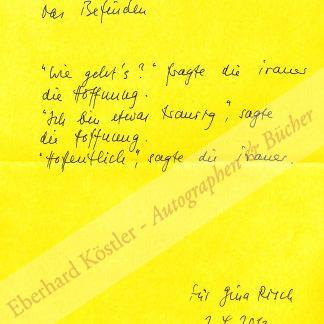 Das Befinden
"Wie geht's?" fragte die Trauer
die Hoffnung.
"Ich bin etwas traurig", sagte
die Hoffnung.
"Hoffentlich", sagte die Trauer.
Für Gina Risch
Eberhard Köstler - Autographen & Bücher